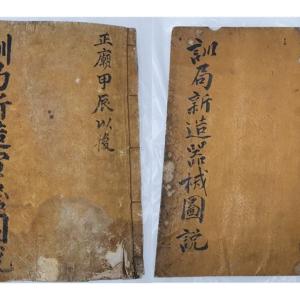 訓局新造軍器圖說
正廟甲辰以後
訓局新造器械圖說